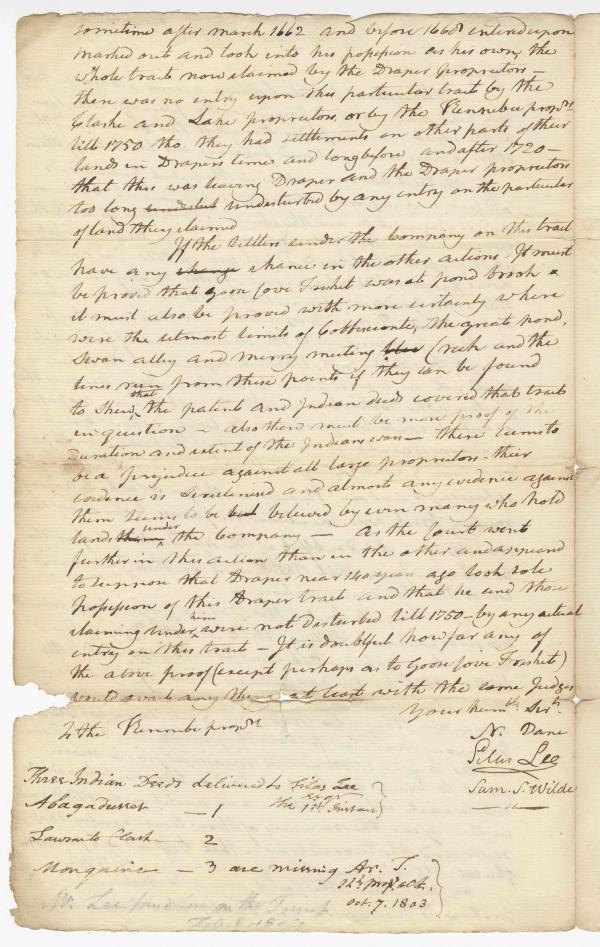 sometime after march 1662 and before 1668 entered upon
marked out and took into his possession as his own, the
whole tract now claimed by the Draper proprietors —
there was no entry upon this particular tract by the
Clarke and Lake proprietors, or by the Kennebec prop.rs
till 1750 tho they had settlements on other parts of their
lands in Drapers time and long before and after 1720 —
that this was leaving Draper and the Draper proprietors
too long undisturbed by any entry on the particular
of land they claimed
If the settlers under the Company on this tract
have any chance in the other actions. It must
be proved that Goose Cove Friskit was at pond brook &
it must also be proved with more certainty where
were the utmost limits of Cobbiseconte, the great pond,
Swan alley and merry meeting (reck and the
lines run from these points if they can be found
to shew that the patent and Indian deeds covered that tract
in question – also there must be more proof of the
duration and extent of the Indian wars — there seems to
be a prejudice against all large proprietors – their
evidence is scrutinised and almost any evidence against
them seems to be believed by even many who hold
lands under the Company — As the Court went
further in this action than in the other and appeared
to suppose that Draper near 140 years ago took sole
possession of this Draper tract and that he and those
claiming under him were not Disturbed till 1750 – by any actual
entry on this tract – It is doubtful how far any of
the above proof (except perhaps as to Goose Cove Friskit)
would avail any thing at least with the same Judges
Your humb. Ser.ts
To the Kennebec prop.rs
N. Dane
Silas Lee
Sam. S. Wilde
Three Indian Deeds delivered to Silas Lee
Abagadusset — 1
Lawson to Clark — 2
Monquine — 3 are missing Ar. T.
Oct. 7. 1803
Mr. Lee